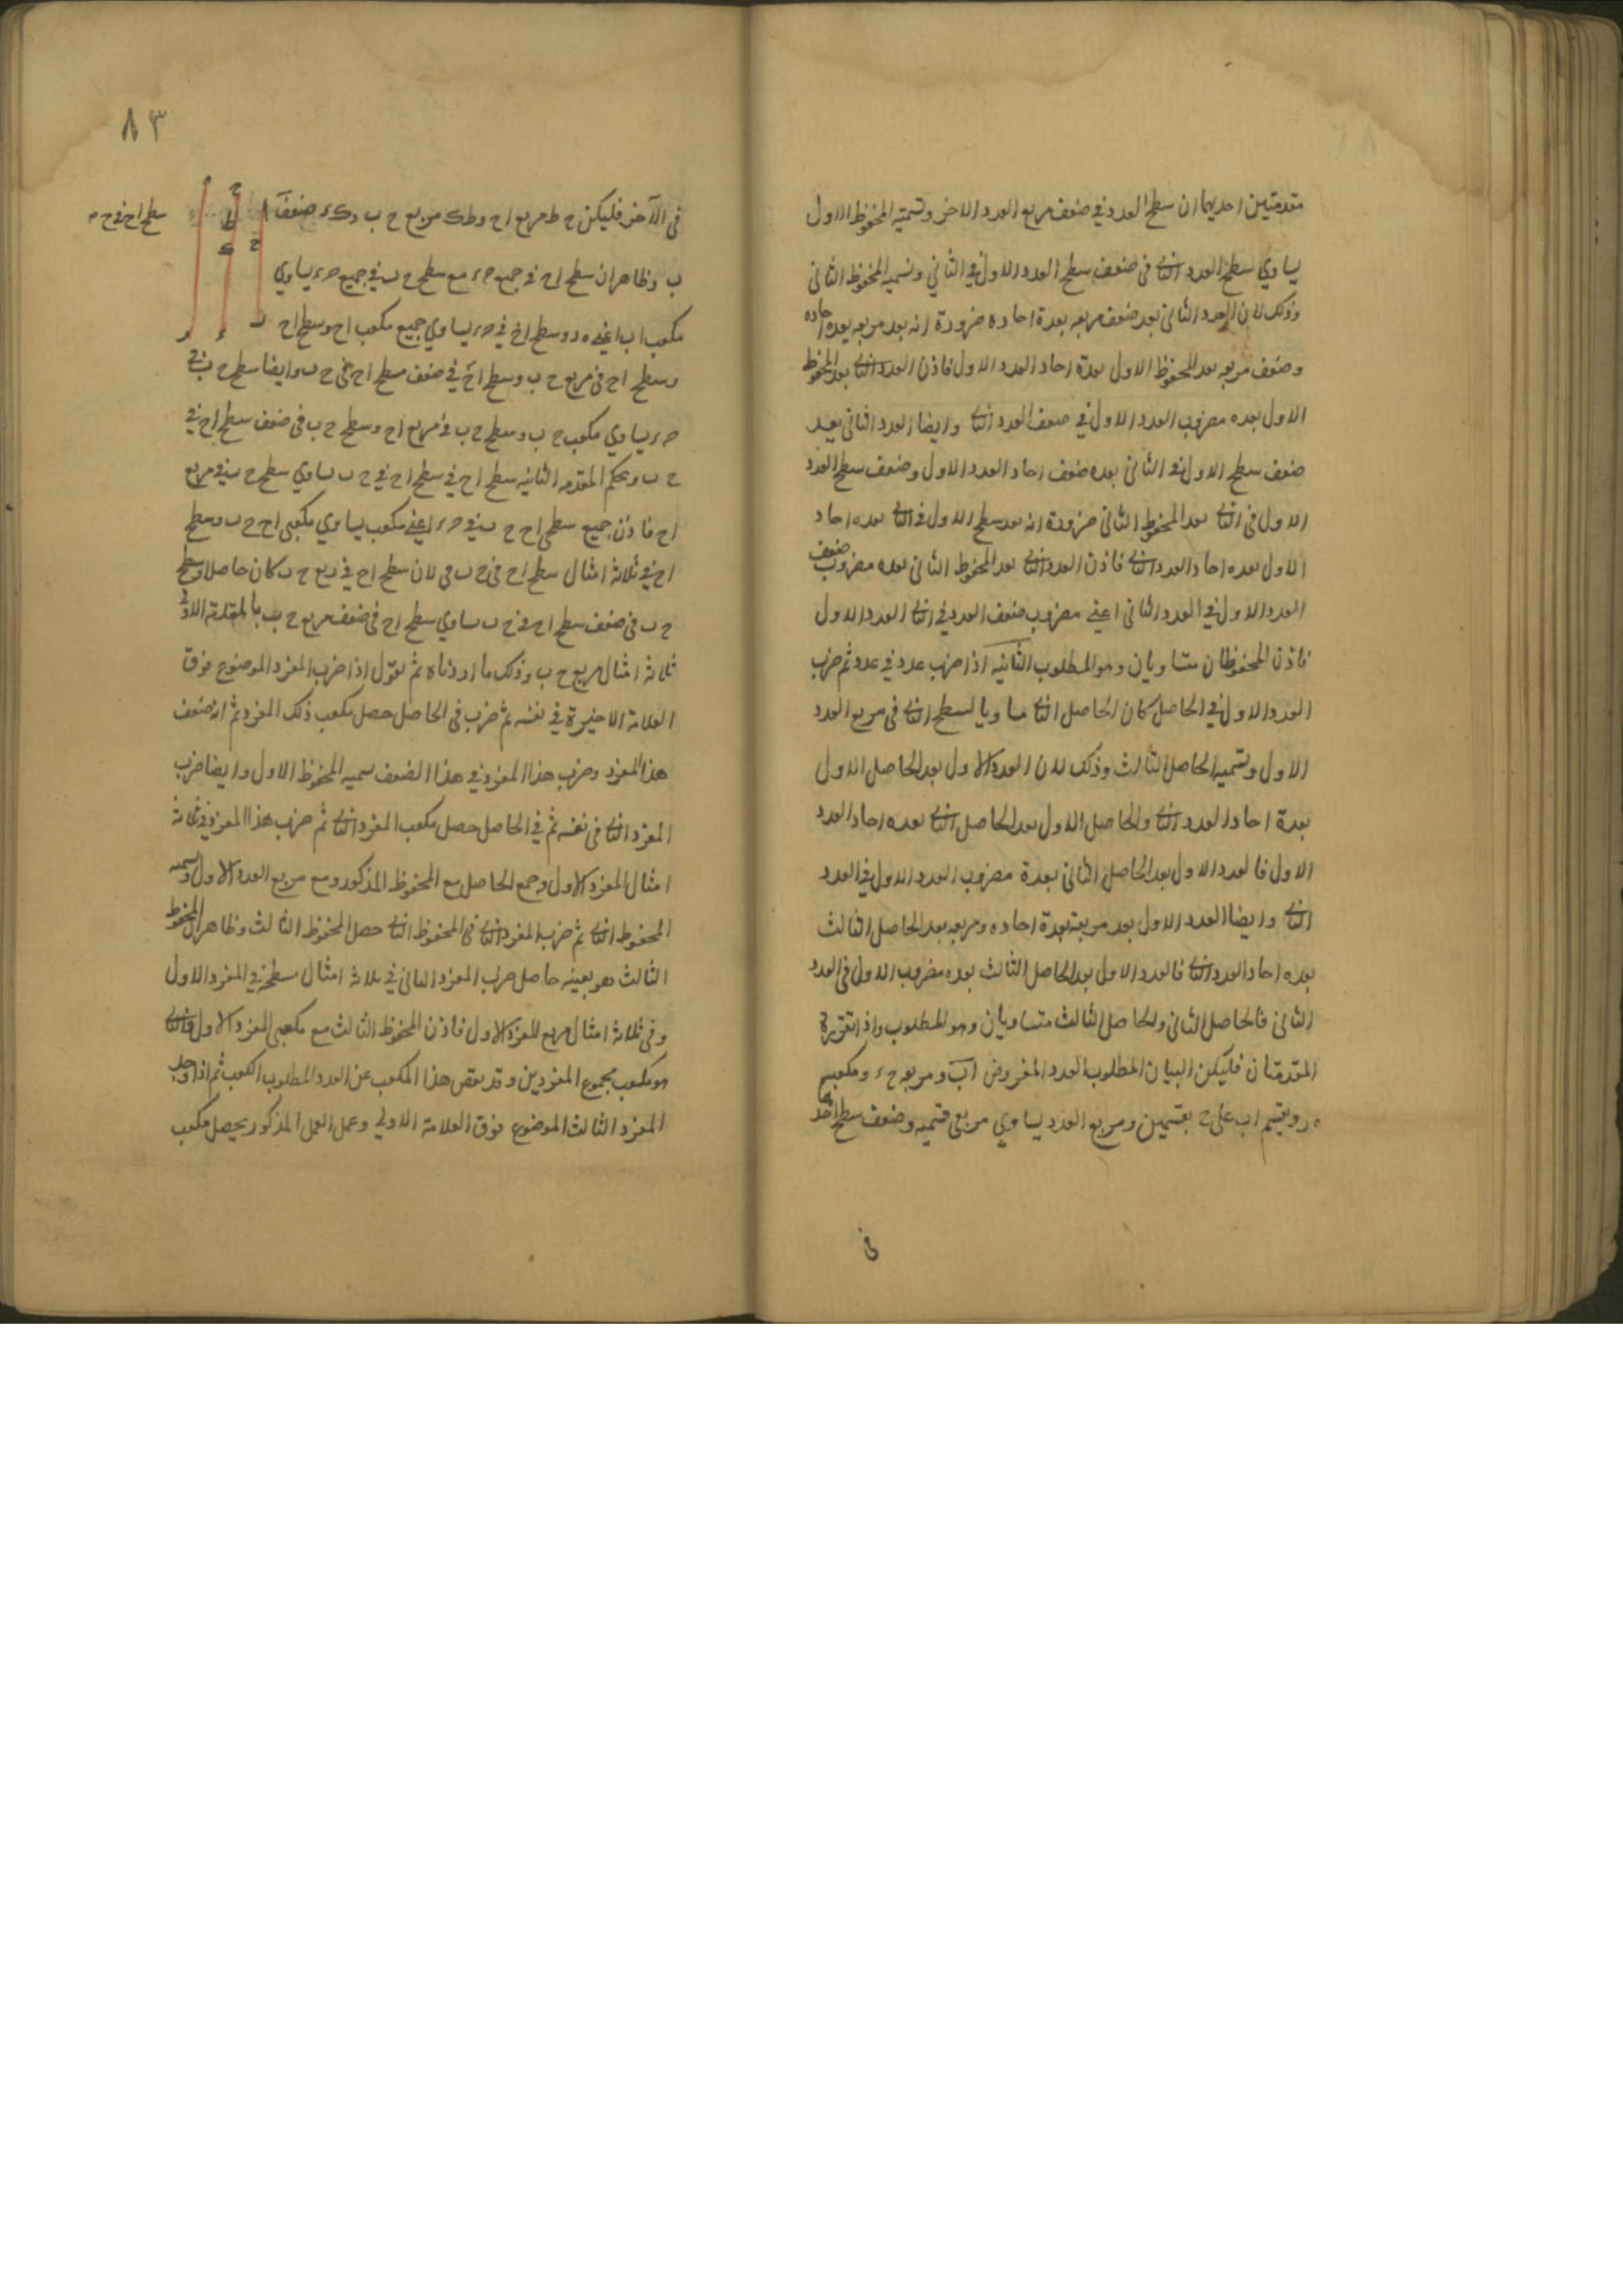 مقدمتين احديهما ان سطح العدد في ضعف مربع العدد الاخر ونسميه المحفوظ الاول
يساوي سطح العدد الثاني في ضعف سطح العدد الاول في الثاني ونسميه المحفوظ الثاني
وذلك لان العدد الثاني يعد ضعف مربعه بعدة احاده ضرورة انه يعد مربعه بعدة احاده
وضعف مربعه يعد المحفوظ الاول بعدة احاد العدد الاول فاذن العدد الثاني يعد المحفوظ
الاول بعده مضروب العدد الاول في ضعف العدد الثاني وايضا العدد الثاني يعد
ضعف سطح الاول في الثاني بعده ضعف احاد العدد الاول وضعف سطح العدد
الاول في الثاني يعد المحفوظ الثاني ضرورة انه يعد سطح الاول في الثاني بعده احاد
الاول بعده احاد العدد الثاني فاذن العدد الثاني يعد المحفوظ الثاني بعده مضروب ضعف
العدد الاول في العدد الثاني اعني مضروب ضعف العدد في الثاني العدد الاول
فاذن المحفوظان متساويان وهو المطلوب الثانية اذا ضرب عدد في عدد ثم ضرب
العدد الاول في الحاصل كان الحاصل الثاني مساويا لسطح الثاني في مربع العدد
الاول ونسميه الحاصل الثالث وذلك لان العدد الاول يعد الحاصل الاول
بعدة احاد العدد الثاني والحاصل الاول يعد الحاصل الثاني بعده احاد العدد
الاول فالعدد الاول يعد الحاصل الثاني بعدة مضروب العدد الاول في العدد
الثاني وايضا العدد الاول يعد مربعه بعدة احاده ومربعه يعد الحاصل الثالث
بعده احاد العدد الثاني فالعدد الاول يعد الحاصل الثالث بعده مضروب الاول في العدد
الثاني فالحاصل الثاني والحاصل الثالث متساويان وهو المطلوب واذا تقررت
المقدمتان فليكن لبيان المطلوب العدد المفروض اب ومربعه ح ء ومكعبه
ه ر ويقسم اب على ح بقسمين ومربع العدد يساوي مربعي قسميه وضعف سطح احدهما
في
٨٣
في الآخر فليكن ح ط مربع اح وط ك مربع ح ب وك ء ضعف
سطح اح في ح
ب وظاهر ان سطح اح في جميع ح ء مع سطح ح ب في جميع ح ء يساوي
مكعب اب اعني ه ر وسطح اح في ح ء يساوي جميع مكعب اح وسطح اح
وسطح اح في مربع ح ب وسطح اح في ضعف سطح اح في ح ب وايضا سطح ح ب في
ح ء يساوي مكعب ح ب وسطح ح ب في مربع اح وسطح ح ب في ضعف سطح اح في
ح ب وبحكم المقدمه الثانيه سطح اح في سطح اح في ح ب يساوي سطح ح ب في مربع
اح فاذن جميع سطحي اح ح ب في ح ء اعني مكعب يساوي مكعبي اح ح ب وسطح
اح في ثلاثة امثال سطح اح في ح ب لان سطح اح في ربع ح ب كان حاصلا وسطح
ح ب في ضعف سطح اح في ح ب يساوي سطح اح في ضعف مربع ح ب بالمقدمة الاولى
ثلاثة امثال مربع ح ب وذلك ما اردناه ثم نقول اذا ضرب المفرد الموضوع فوق
العلامة الاخيرة في نفسه ثم ضرب في الحاصل حصل مكعب ذلك المفرد ثم انه ضعف
هذا المفرد وضرب هذا المفرد في هذا الضعف نسميه المحفوظ الاول وايضا ضرب
المفرد الثاني في نفسه ثم في الحاصل حصل مكعب المفرد الثاني ثم ضرب هذا المفرد في ثلاثة
امثال المفرد الاول وجمع الحاصل مع المحفوظ المذكور ومع مربع العدد الاول ونسميه
المحفوظ الثاني ثم ضرب المفرد الثاني في المحفوظ الثاني حصل المحفوظ الثالث وظاهر ان المحفوظ
الثالث هو بعينه حاصل ضرب المفرد الثاني في ثلاثة امثال مسطحه في المفرد الاول
وفي ثلاثة امثال مربع المفرد الاول فاذن المحفوظ الثالث مع مكعبي المفرد الاول والثاني
هو مكعب مجموع المفردين وقد نقص هذا المكعب عن العدد المطلوب الكعب ثم اذا وجد
المفرد الثالث الموضوع فوق العلامة الاولى وعمل العمل المذكور يحصل مكعب